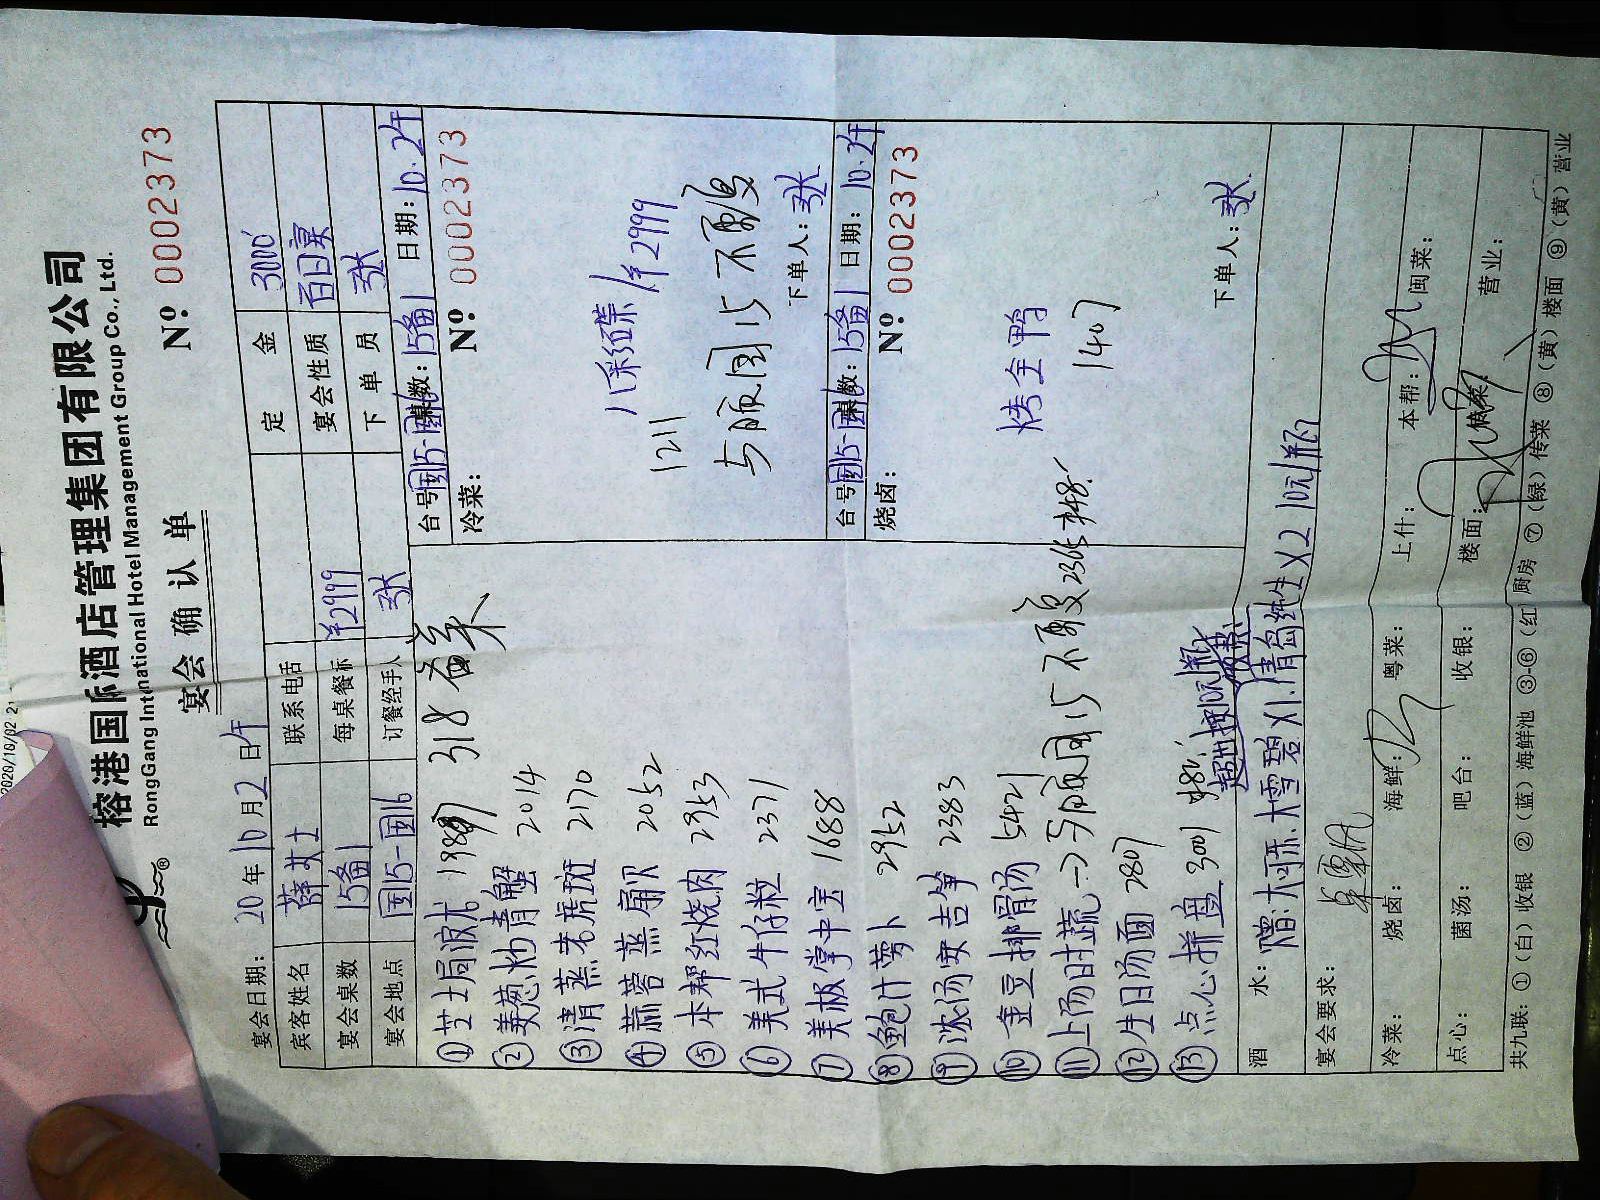 2020/10/02
榕港国际酒店管理集团有限公司
RongGang International Hotel Management Group Co., Ltd.
®
宴会确认单
Nº 0002373
宴会日期: 20 年 10 月 2 日 午
宾客姓名 薛女士 联系电话 定金 3000
宴会桌数 15备1 每桌餐标 ¥2999 宴会性质 百日宴
宴会地点 国15-国16 订餐经手人 张 下单员 张
318 有菜
①芝士局波龙 1987
②姜葱炒青蟹 2014
③清蒸老虎斑 2170
④蒜蓉蒸扇贝 2052
⑤本帮红烧肉 2953
⑥美式牛仔粒 2371
⑦美极掌中宝 1688
⑧鲍汁萝卜 2952
⑨浓汤安吉笋 2383
⑩金豆排骨汤 5421
⑪上汤时蔬→与丽园15不要 2365
⑫生日汤面 2807
⑬点心拼盘 3001
台号 国15-国16 桌数: 15备1 日期: 10.2午
冷菜: Nº 0002373
八彩碟 ¥2999
1211
与丽园15不要
下单人: 张
台号 国15-国16 桌数: 15备1 日期: 10.2午
烧卤: Nº 0002373
烤全鸭
1407
下单人: 张
酒水: 赠:大可乐.大雪碧X1.青岛纯生X2
宴会要求:
冷菜: 烧卤: 海鲜: 粤菜: 上什: 本帮: 闽菜:
点心: 菌汤: 吧台: 收银: 楼面: 营业:
共九联: ①(白)收银 ②(蓝)海鲜池 ③-⑥(红)厨房 ⑦(绿)传菜 ⑧(黄)楼面 ⑨(黄)营业